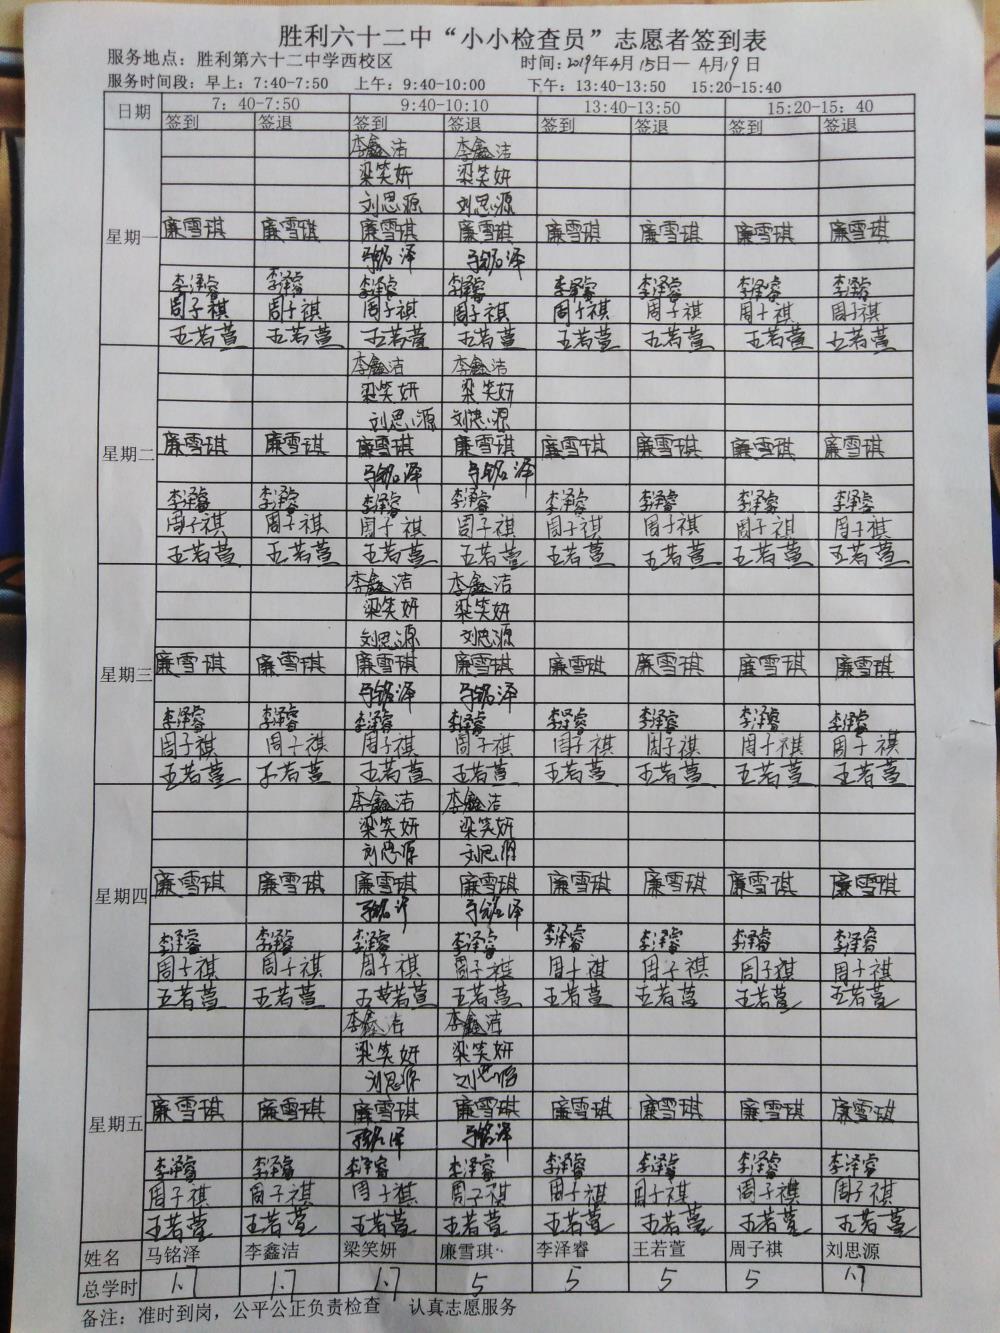 胜利六十二中“小小检查员”志愿者签到表
服务地点：胜利第六十二中学西校区 时间：2019年4月15日— 4月19日
服务时间段：早上：7:40-7:50 上午：9:40-10:00 下午：13:40-13:50 15:20-15:40
日期 7：40-7:50 9:40-10:10 13:40-13:50 15:20-15：40
签到 签退 签到 签退 签到 签退 签到 签退
李鑫洁 李鑫洁
梁笑妍 梁笑妍
刘思源 刘思源
星期一 廉雪琪 廉雪琪 廉雪琪 廉雪琪 廉雪琪 廉雪琪 廉雪琪 廉雪琪
马铭泽 马铭泽
李泽睿 李泽睿 李泽睿 李泽睿 李泽睿 李泽睿 李泽睿 李泽睿
周子祺 周子祺 周子祺 周子祺 周子祺 周子祺 周子祺 周子祺
王若萱 王若萱 王若萱 王若萱 王若萱 王若萱 王若萱 王若萱
李鑫洁 李鑫洁
梁笑妍 梁笑妍
刘思源 刘思源
星期二 廉雪琪 廉雪琪 廉雪琪 廉雪琪 廉雪琪 廉雪琪 廉雪琪 廉雪琪
马铭泽 马铭泽
李泽睿 李泽睿 李泽睿 李泽睿 李泽睿 李泽睿 李泽睿 李泽睿
周子祺 周子祺 周子祺 周子祺 周子祺 周子祺 周子祺 周子祺
王若萱 王若萱 王若萱 王若萱 王若萱 王若萱 王若萱 王若萱
李鑫洁 李鑫洁
梁笑妍 梁笑妍
刘思源 刘思源
星期三 廉雪琪 廉雪琪 廉雪琪 廉雪琪 廉雪琪 廉雪琪 廉雪琪 廉雪琪
马铭泽 马铭泽
李泽睿 李泽睿 李泽睿 李泽睿 李泽睿 李泽睿 李泽睿 李泽睿
周子祺 周子祺 周子祺 周子祺 周子祺 周子祺 周子祺 周子祺
王若萱 王若萱 王若萱 王若萱 王若萱 王若萱 王若萱 王若萱
李鑫洁 李鑫洁
梁笑妍 梁笑妍
刘思源 刘思源
星期四 廉雪琪 廉雪琪 廉雪琪 廉雪琪 廉雪琪 廉雪琪 廉雪琪 廉雪琪
马铭泽 马铭泽
李泽睿 李泽睿 李泽睿 李泽睿 李泽睿 李泽睿 李泽睿 李泽睿
周子祺 周子祺 周子祺 周子祺 周子祺 周子祺 周子祺 周子祺
王若萱 王若萱 王若萱 王若萱 王若萱 王若萱 王若萱 王若萱
李鑫洁 李鑫洁
梁笑妍 梁笑妍
刘思源 刘思源
星期五 廉雪琪 廉雪琪 廉雪琪 廉雪琪 廉雪琪 廉雪琪 廉雪琪 廉雪琪
马铭泽 马铭泽
李泽睿 李泽睿 李泽睿 李泽睿 李泽睿 李泽睿 李泽睿 李泽睿
周子祺 周子祺 周子祺 周子祺 周子祺 周子祺 周子祺 周子祺
王若萱 王若萱 王若萱 王若萱 王若萱 王若萱 王若萱 王若萱
姓名 马铭泽 李鑫洁 梁笑妍 廉雪琪 李泽睿 王若萱 周子祺 刘思源
总学时 1.7 1.7 1.7 5 5 5 5 1.7
备注：准时到岗，公平公正负责检查 认真志愿服务